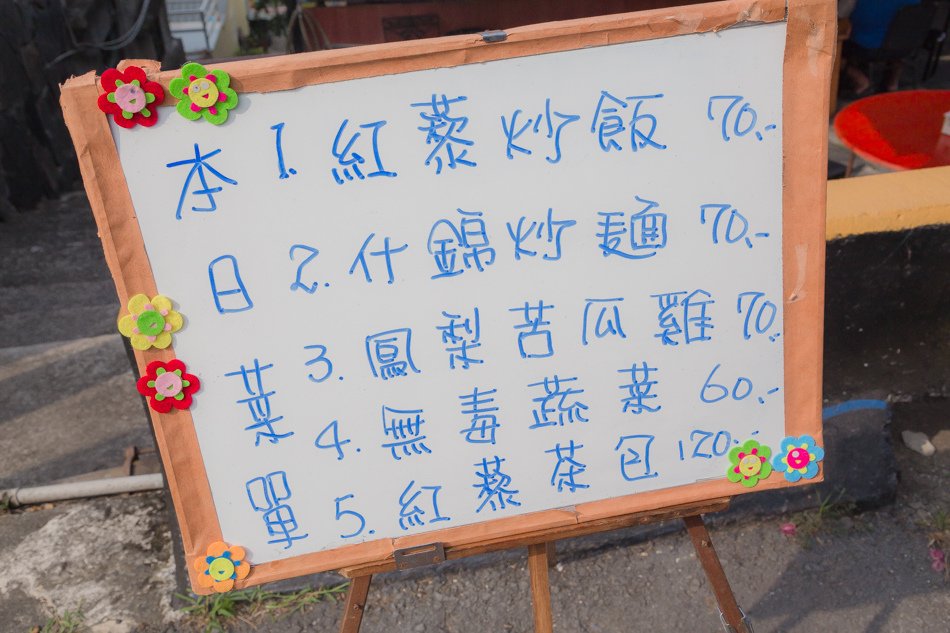 本日菜單
1. 紅藜炒飯 70.-
2. 什錦炒麵 70.-
3. 鳳梨苦瓜雞 70.
4. 無毒蔬菜 60.-
5. 紅藜茶包 120.-